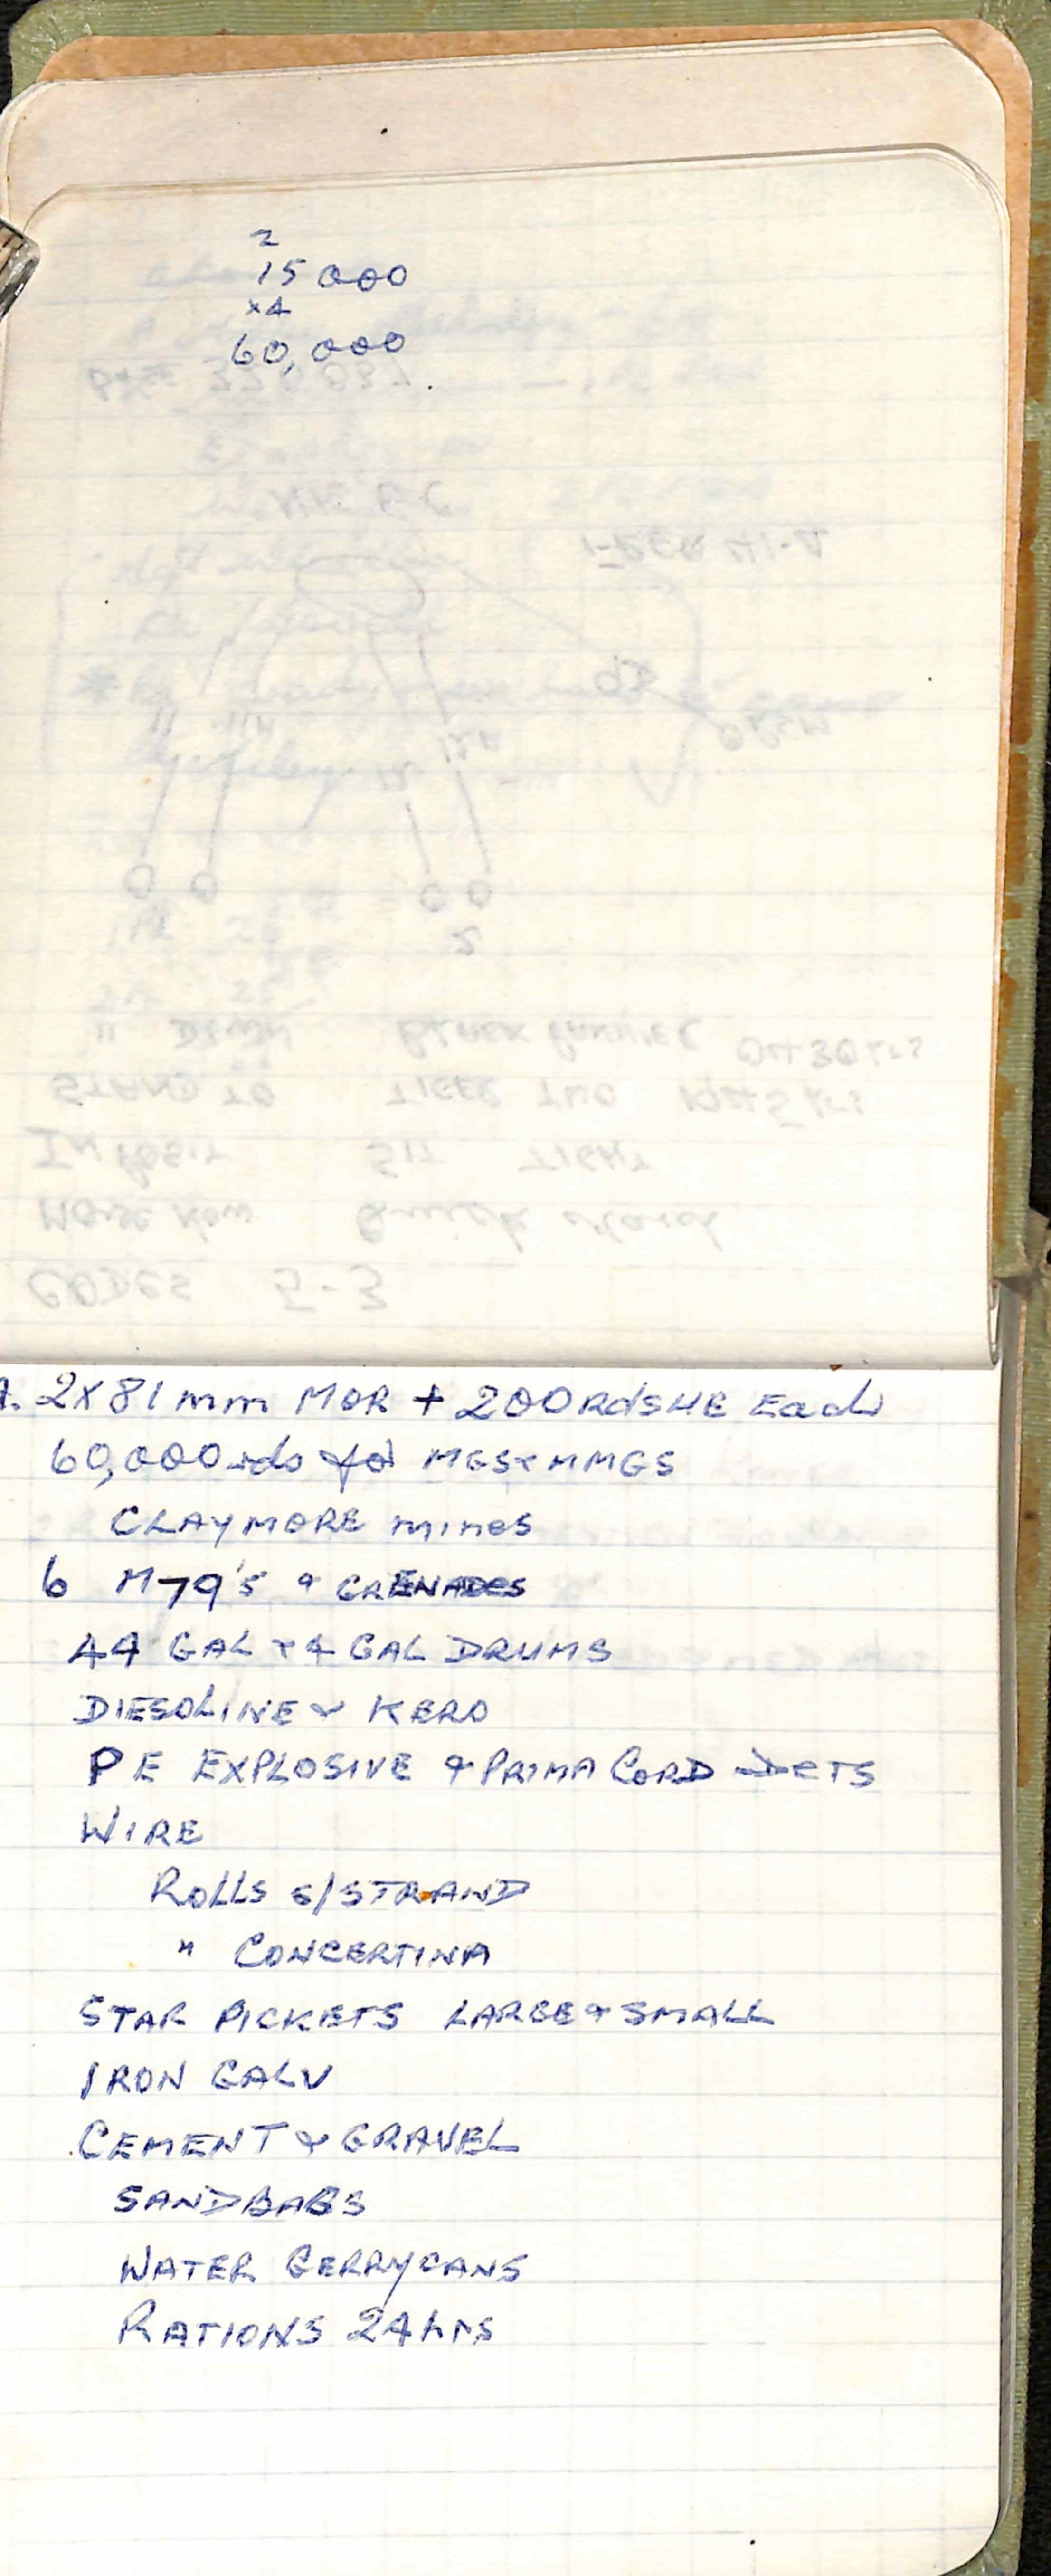 2
15 000
x4
60,000
A. 2X81mm MOR + 200RdSHE Each
60,000 rds for MGS & MMGS
CLAYMORE mines
6 M79's & GRENADES
44 GAL & 4 GAL DRUMS
DIESOLINE & KERO
PE EXPLOSIVE & PRIMA CORD DETS
WIRE
ROLLS S/STRAND
" CONCERTINA
STAR PICKETS LARGE & SMALL
IRON GALV
CEMENT & GRAVEL
SANDBAGS
WATER GERRYCANS
RATIONS 24hrs